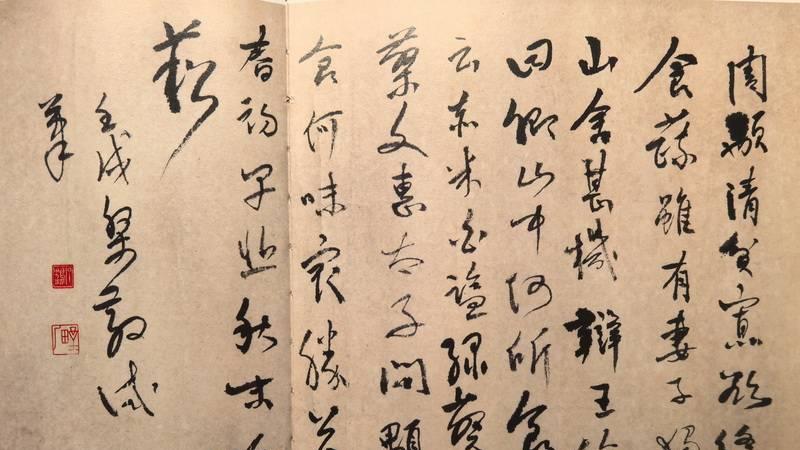 周顒清貧寡欲終
食蔬雖有妻子獨
山舍甚機辯王儉
曰卿山中何所食
云赤米白鹽綠葵
蓼文惠太子問顒
食何味最勝
春初早韭秋末
菘
壬戌
筆